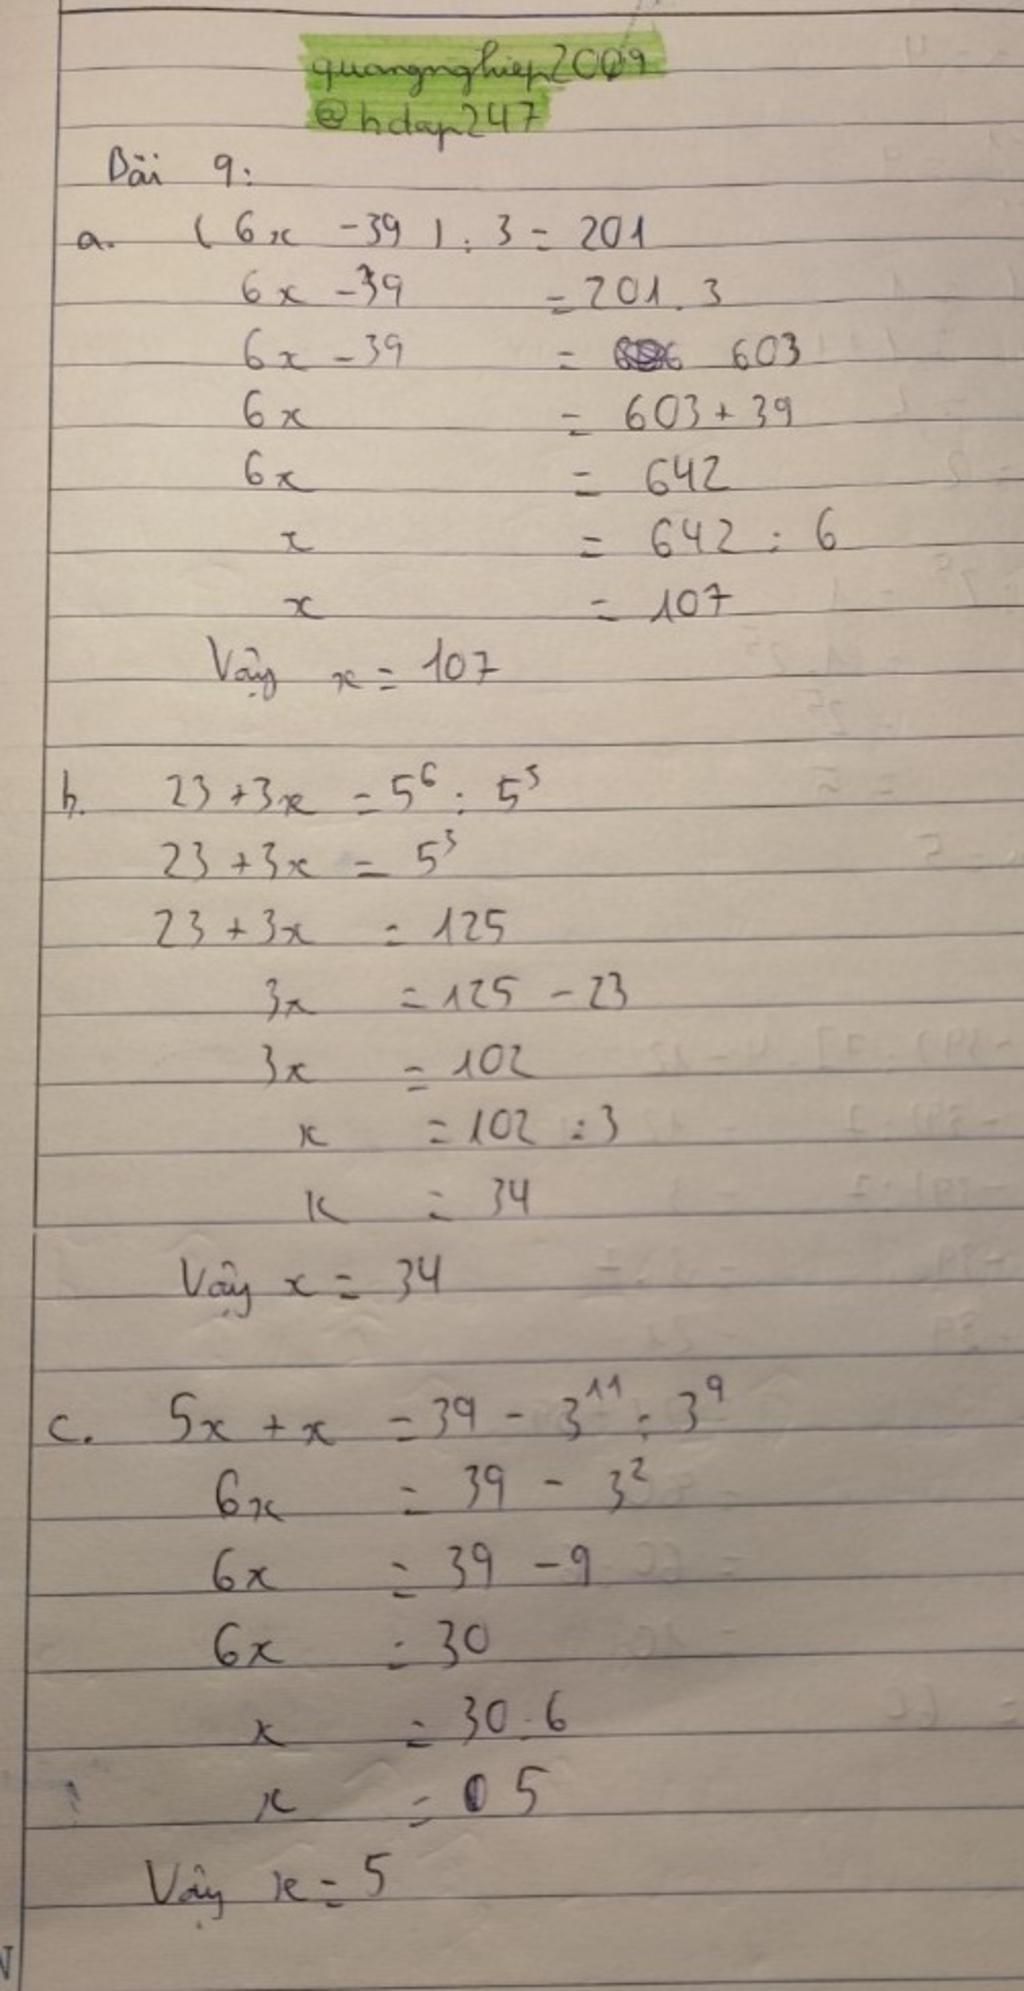 quangnghiep2009
@hdap247
Bài 9:
a. ( 6x - 39 ) : 3 = 201
6x - 39 = 201 . 3
6x - 39 = 603
6x = 603 + 39
6x = 642
x = 642 : 6
x = 107
Vậy x = 107
b. 23 + 3x = 5⁶ : 5³
23 + 3x = 5³
23 + 3x = 125
3x = 125 - 23
3x = 102
x = 102 : 3
x = 34
Vậy x = 34
c. 5x + x = 39 - 3¹¹ : 3⁹
6x = 39 - 3²
6x = 39 - 9
6x = 30
x = 30 : 6
x = 5
Vậy x = 5